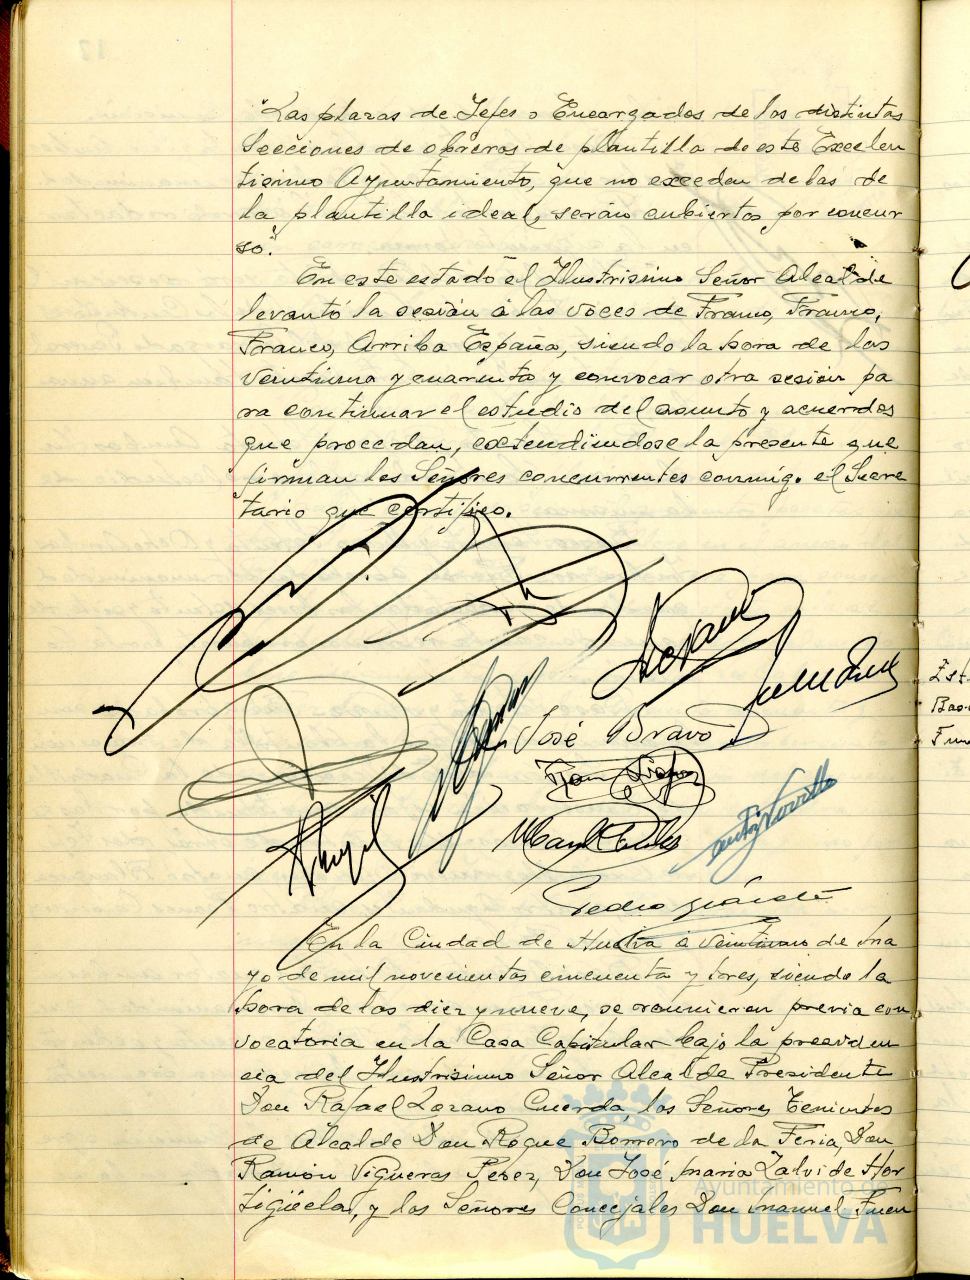 "Las plazas de Jefes o Encargados de los distintas
Secciones de obreros de plantilla de este Excelen
tisimo Ayuntamiento, que no excedan de las de
la plantilla ideal, serán cubiertas por concur
so."
En este estado el Ilustrisimo Señor Alcalde
levantó la sesión a las voces de Franco, Franco,
Franco, Arriba España, siendo la hora de las
veintiuna y cuarenta y convocar otra sesión pa
ra continuar el estudio del asunto y acuerdos
que procedan, extendiendose la presente que
firman los Señores concurrentes conmigo el Secre
tario que certifico.
José Bravo
Pedro
En la Ciudad de Huelva a veintiuno de Ma
yo de mil novecientos cincuenta y tres, siendo la
hora de las diez y nueve, se reunieron previa con
vocatoria en la Casa Capitular bajo la presiden
cia del Ilustrisimo Señor Alcalde Presidente
Don Rafael Lozano Cuerda, los Señores Tenientes
de Alcalde Don Roque Borrero de la Feria, Don
Ramón Vigueras Perez, Don José Maria Zalvide Hor
tigüela, y los Señores Concejales Don Manuel Fuen
Ayuntamiento de
HUELVA